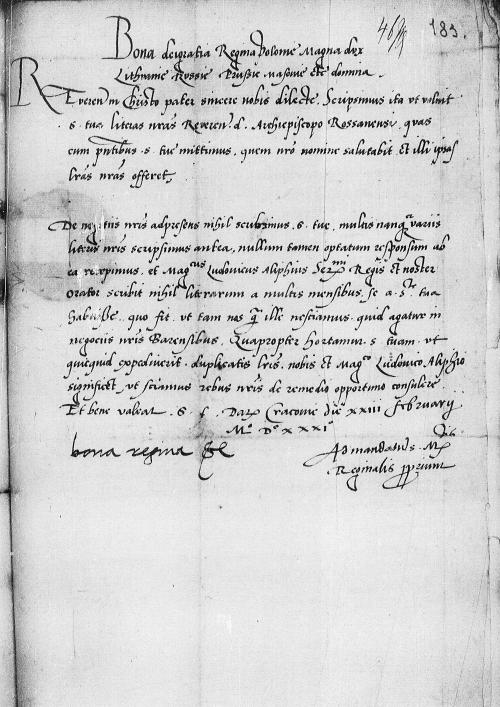 183.
Bona dei gratia Regina Polonie Magna dux
Lithuanie Russie Prussie Masovie etc domina.
Reveren in Christo pater sincere nobis dilecte. Scripsimus ita ut voluit
s. tua literas nras Reveren. d. Archiepiscopo Rossanensi, quas
cum pntibus s. tue mittimus, quem nro nomine salutabit et illi ipsas
lras nras offeret.
De negotiis nris adpresens nihil scribimus s. tue, multis nanq variis
literis nris scripsimus antea, nullum tamen optatum responsum ab
ea recepimus. et Mag cus Ludovicus Aliphius Regis et noster
orator scribit nihil literarum a multis mensibus se a s. tua
habuisse. quo fit ut tam nos q ille nesciamus quid agatur in
negociis nris Barensibus. Quapropter hortamur s tuam ut
quicquid expediverit duplicatis lris nobis et Mag co Ludovico Aliphio
significet, ut sciamus rebus nris de remedio opportuno consulere
Et bene valeat. S. t. Dat Cracovie die xxiii february
M o D o xxxi o
bona regina
Ad mandatum
Reginalis pprium